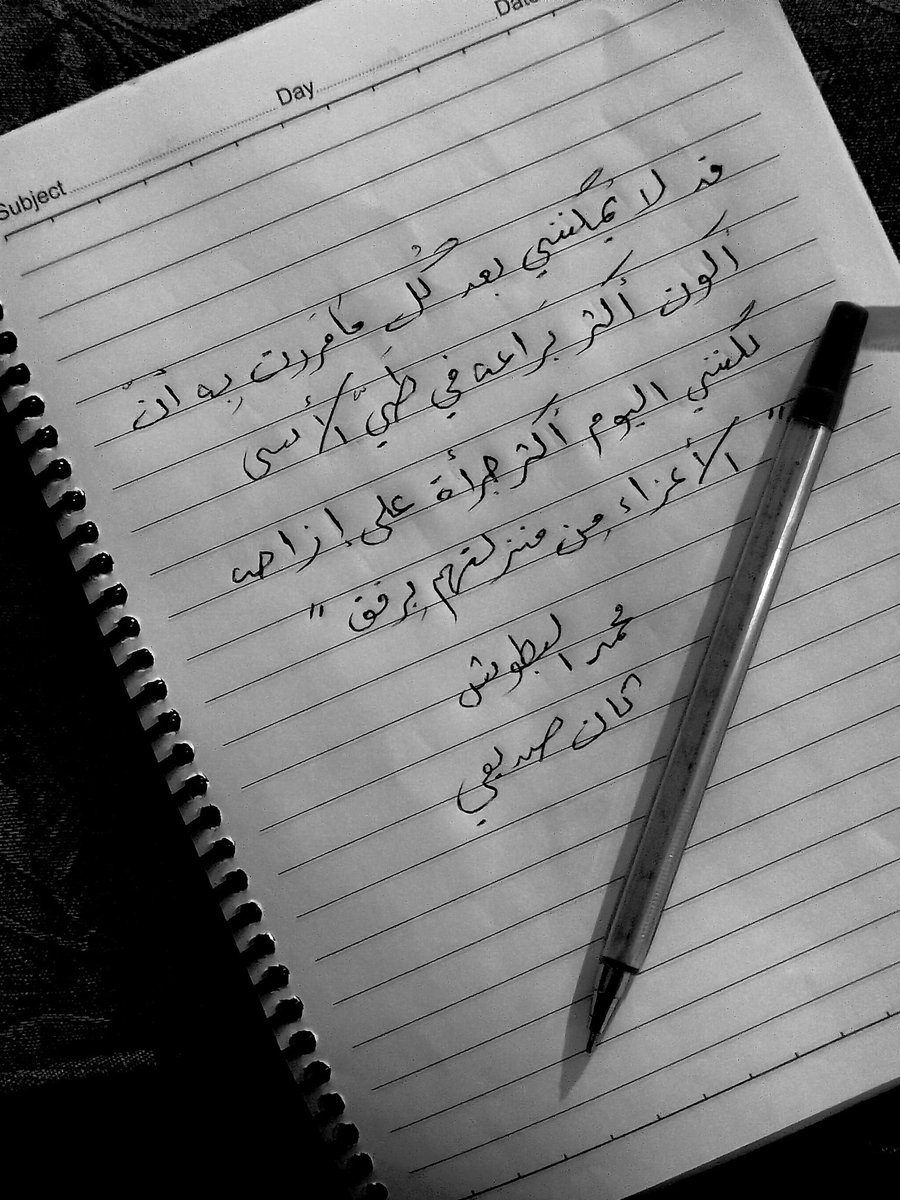 Date
Day
Subject
قد لا يمكنني بعد كُلِ مَا مَررت بِه انْ
أكون أكثر بَراعه في طَيّ الأسى
لكنني اليوم أكثر جرأة على إزاحه
الأعزاء مِن منزلتهم بِرفق "
محمد البطوش
كان صديقي